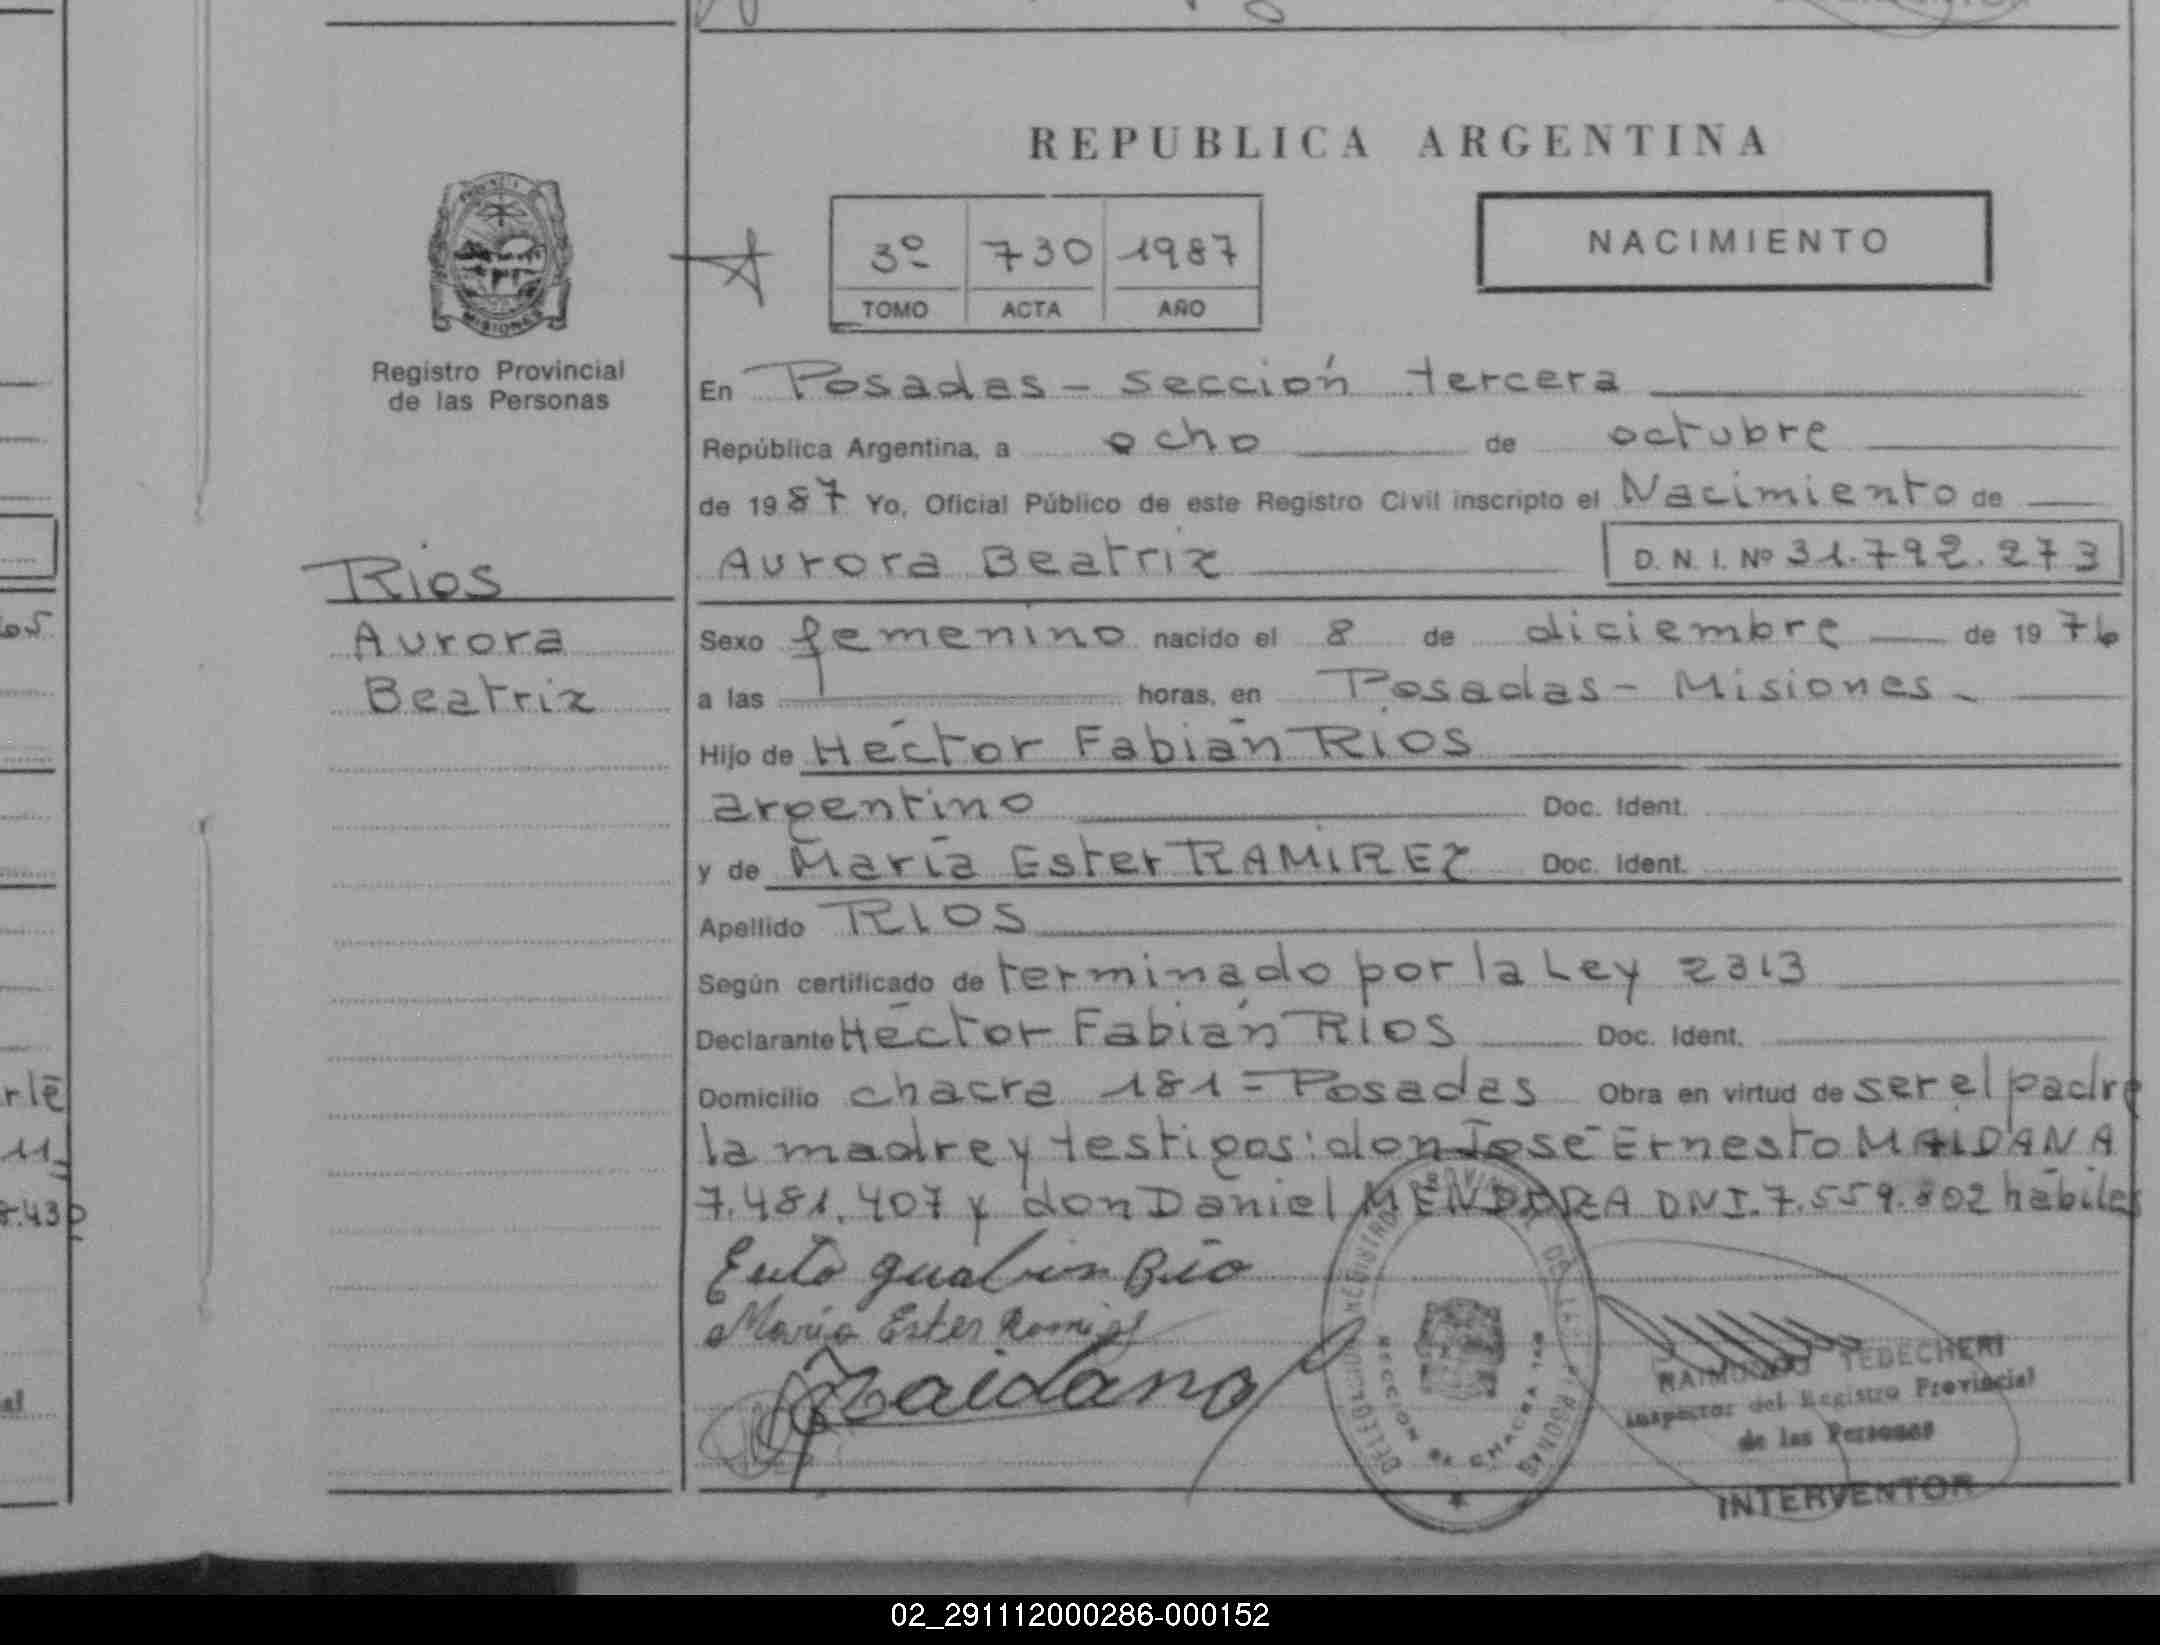 REPUBLICA ARGENTINA
NACIMIENTO
3º 730 1987
TOMO ACTA AÑO
PROVINCIA
MISIONES
Registro Provincial
de las Personas
Rios
Aurora
Beatriz
En Posadas - sección tercera
República Argentina, a ocho de octubre
de 1987 Yo, Oficial Público de este Registro Civil inscripto el Nacimiento de
Aurora Beatriz D. N. I. Nº 31.792.273
Sexo femenino nacido el 8 de diciembre de 1976
a las horas, en Posadas - Misiones -
Hijo de Héctor Fabián RIOS
argentino Doc. Ident.
y de María Ester RAMIREZ Doc. Ident.
Apellido RIOS
Según certificado de terminado por la Ley 2313
Declarante Héctor Fabián RIOS Doc. Ident.
Domicilio chacra 181 = Posadas Obra en virtud de ser el padre
la madre y testigos: don José Ernesto MAIDANA
7.481.407 y don Daniel MENDOZA DNI. 7.559.802 hábiles
María Ester Ramirez
Maidana
RAIMUNDO TEDECHERI
Inspector del Registro Provincial
de las Personas
INTERVENTOR
rle
11
8.430
al
02_291112000286-000152